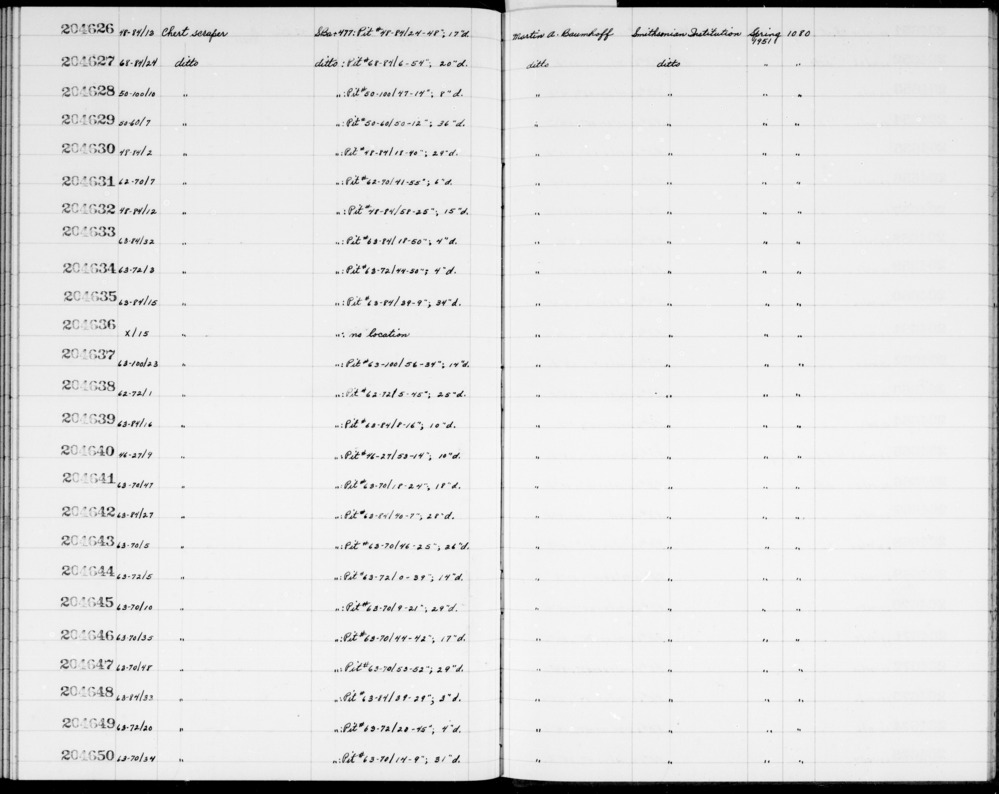 204626 48-84/13 Chert scraper SBa-477: Pit #48-84/24-48"; 17"d. Martin A. Baumhoff Smithsonian Institution Spring 1951 1080
204627 68-84/24 ditto ditto: Pit #68-84/6-54"; 20"d. ditto ditto " "
204628 50-100/10 " ": Pit #50-100/47-14"; 8"d. " " " "
204629 50-60/7 " ": Pit #50-60/50-12"; 36"d. " " " "
204630 48-84/2 " ": Pit #48-84/18-40"; 24"d. " " " "
204631 62-70/7 " ": Pit #62-70/41-55"; 6"d. " " " "
204632 48-84/12 " ": Pit #48-84/58-25"; 15"d. " " " "
204633 63-84/32 " ": Pit #63-84/18-50"; 4"d. " " " "
204634 63-72/3 " ": Pit #63-72/44-50"; 4"d. " " " "
204635 63-84/15 " ": Pit #63-84/39-9"; 34"d. " " " "
204636 X/15 " ": no location " " " "
204637 63-100/23 " ": Pit #63-100/56-34"; 14"d. " " " "
204638 62-72/1 " ": Pit #62-72/5-45"; 25"d. " " " "
204639 63-84/16 " ": Pit #63-84/8-16"; 10"d. " " " "
204640 46-27/9 " ": Pit #46-27/53-14"; 10"d. " " " "
204641 63-70/47 " ": Pit #63-70/18-24"; 18"d. " " " "
204642 63-84/27 " ": Pit #63-84/40-7"; 28"d. " " " "
204643 63-70/5 " ": Pit #63-70/46-25"; 26"d. " " " "
204644 63-72/5 " ": Pit #63-72/0-39"; 14"d. " " " "
204645 63-70/10 " ": Pit #63-70/9-21"; 29"d. " " " "
204646 63-70/35 " ": Pit #63-70/44-42"; 17"d. " " " "
204647 63-70/48 " ": Pit #63-70/53-52"; 29"d. " " " "
204648 63-84/33 " ": Pit #63-84/39-29"; 3"d. " " " "
204649 63-72/20 " ": Pit #63-72/20-45"; 4"d. " " " "
204650 63-70/34 " ": Pit #63-70/14-9"; 31"d. " " " "